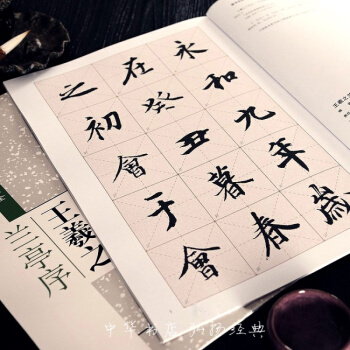 永和九年歲
在癸丑暮春
之初會于會
王羲之
兰亭序
中华 弘扬经典